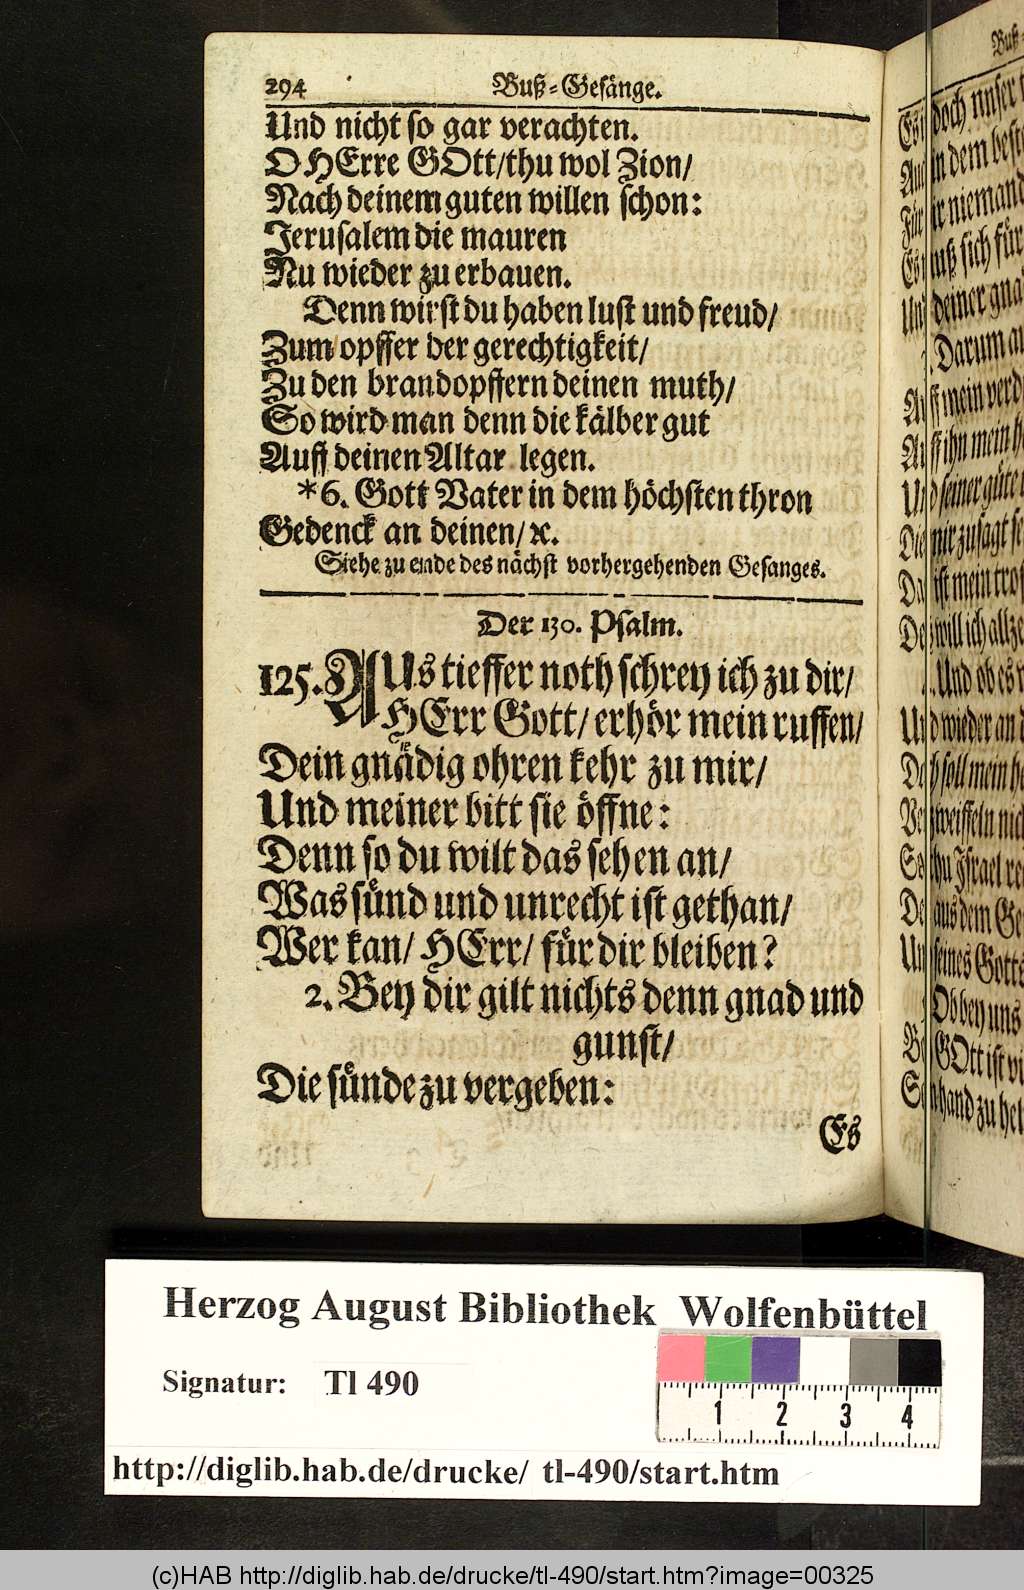 294 Buß-Gesänge.
Und nicht so gar verachten.
O HErre GOtt/thu wol Zion/
Nach deinem guten willen schon:
Jerusalem die mauren
Nu wieder zu erbauen.
Denn wirst du haben lust und freud/
Zum opffer der gerechtigkeit/
Zu den brandopffern deinen muth/
So wird man denn die kälber gut
Auff deinen Altar legen.
*6. Gott Vater in dem höchsten thron
Gedenck an deinen/ ꝛc.
Siehe zu ende des nächst vorhergehenden Gesanges.
Der 130. Psalm.
125. AUs tieffer noth schrey ich zu dir/
HErr Gott/ erhör mein ruffen/
Dein gnädig ohren kehr zu mir/
Und meiner bitt sie öffne:
Denn so du wilt das sehen an/
Was sünd und unrecht ist gethan/
Wer kan/ HErr/ für dir bleiben?
2. Bey dir gilt nichts denn gnad und
gunst/
Die sünde zu vergeben:
Es
Buß-
doch unser
in dem
niemand
sich für
deiner
Darum
mein
ihn mein
seiner güte
mir zusagt
ist mein
will ich
Und ob es
wieder an
soll mein
Israel
aus dem
seines Gotts
Ob bey uns
GOtt ist
hand zu
Herzog August Bibliothek Wolfenbüttel
Signatur: Tl 490
1 2 3 4
http://diglib.hab.de/drucke/ tl-490/start.htm
(c)HAB http://diglib.hab.de/drucke/tl-490/start.htm?image=00325